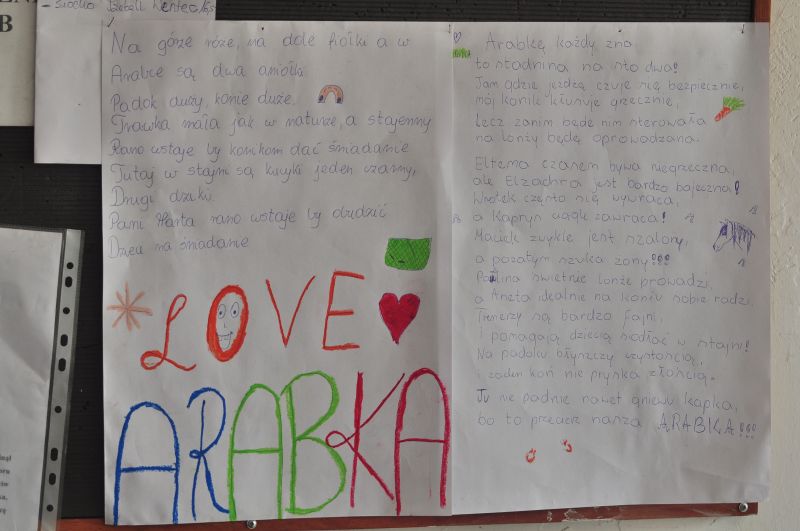 - Siocho Izabell
B
Na górze róże, na dole fiołki a w
Arabce są dwa aniołki.
Padok duży, konie duże.
Trawka mała jak w naturze, a stajenny
Rano wstaje by konikom dać śniadanie
Tutaj w stajni są kucyki jeden czarny,
Drugi dziki.
Pani Marta rano wstaje by obudzić
Dzieci na śniadanie
LOVE
ARABKA
Arabkę każdy zna
to stadnina na sto dwa!
Tam gdzie jeżdżą czuję się bezpiecznie,
mój konik kłusuje grzecznie,
Lecz zanim będę nim sterowała
na lonży będę oprowadzana.
Eltema czasem bywa niegrzeczna,
ale Elzachra jest bardzo bajeczna!
Wrotek często się wywraca,
a Kapryn ciągle zawraca!
Maciek zwykle jest szalony,
a pozatym szuka żony!!!
Paulina świetnie lonże prowadzi,
a Aneta idealnie na koniu sobie radzi.
Trenerzy są bardzo fajni,
i pomagają dziecią siodłać w stajni!
Na padoku błyszczy czystością,
i żaden koń nie pryska złością.
Tu nie padnie nawet gniewu kapka,
bo to przecież nasza ARABKA!!!